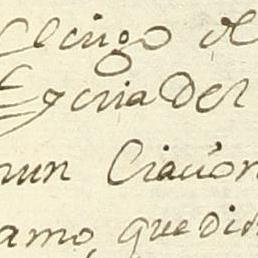 Clerigo de
Egeria Del
nun Ciación
amo, que Did